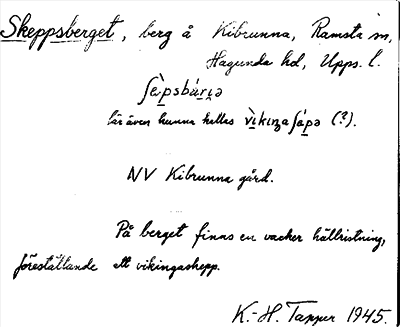 Skeppsberget, berg å Kibrunna, Ramsta sn,
Hagunda hd, Upps. l.
ʃèpsbærɪə
lär även kunna kallas vìkɪŋaʃépə (?).
NV Kibrunna gård.
På berget finns en vacker hällristning,
föreställande ett vikingaskepp.
K.-H. Tapper 1945.